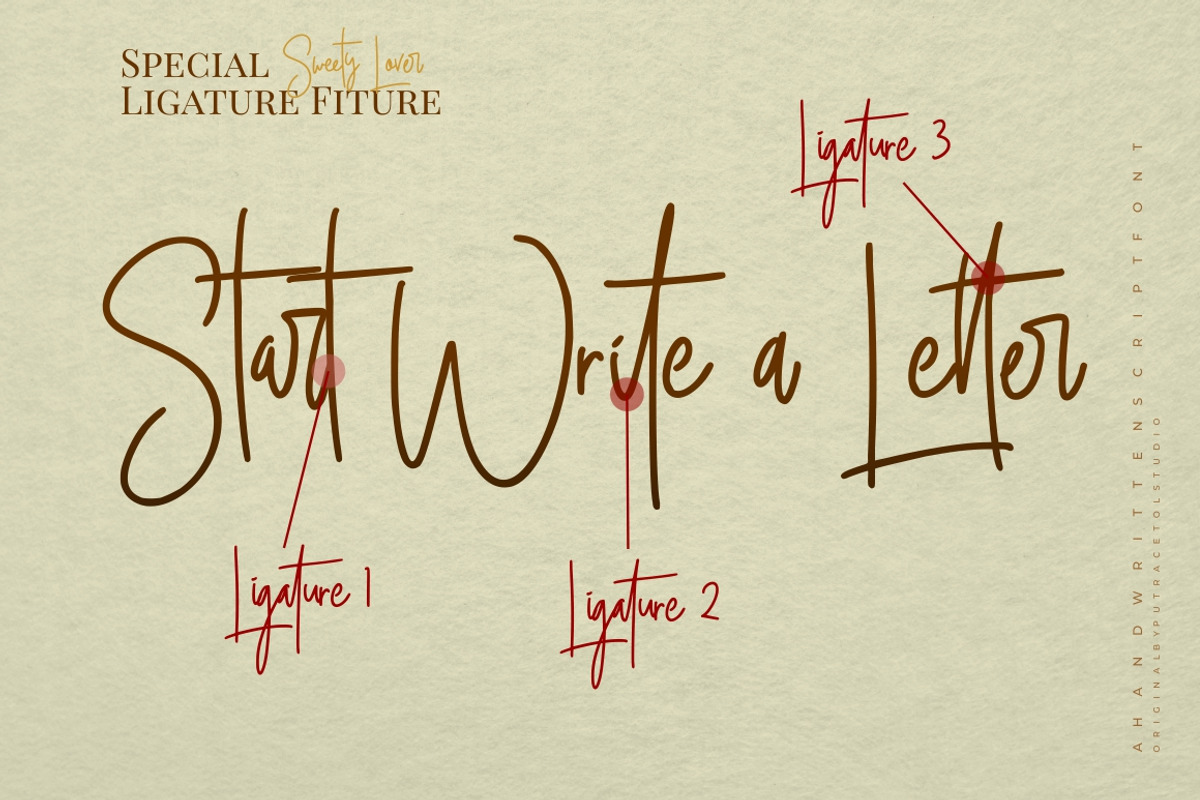 SPECIAL Sweety Lover
LIGATURE FITURE
Ligature 3
Start Write a Letter
Ligature 1
Ligature 2
A HANDWRITTEN SCRIPT FONT
ORIGINAL BY PUTRACETOL STUDIO